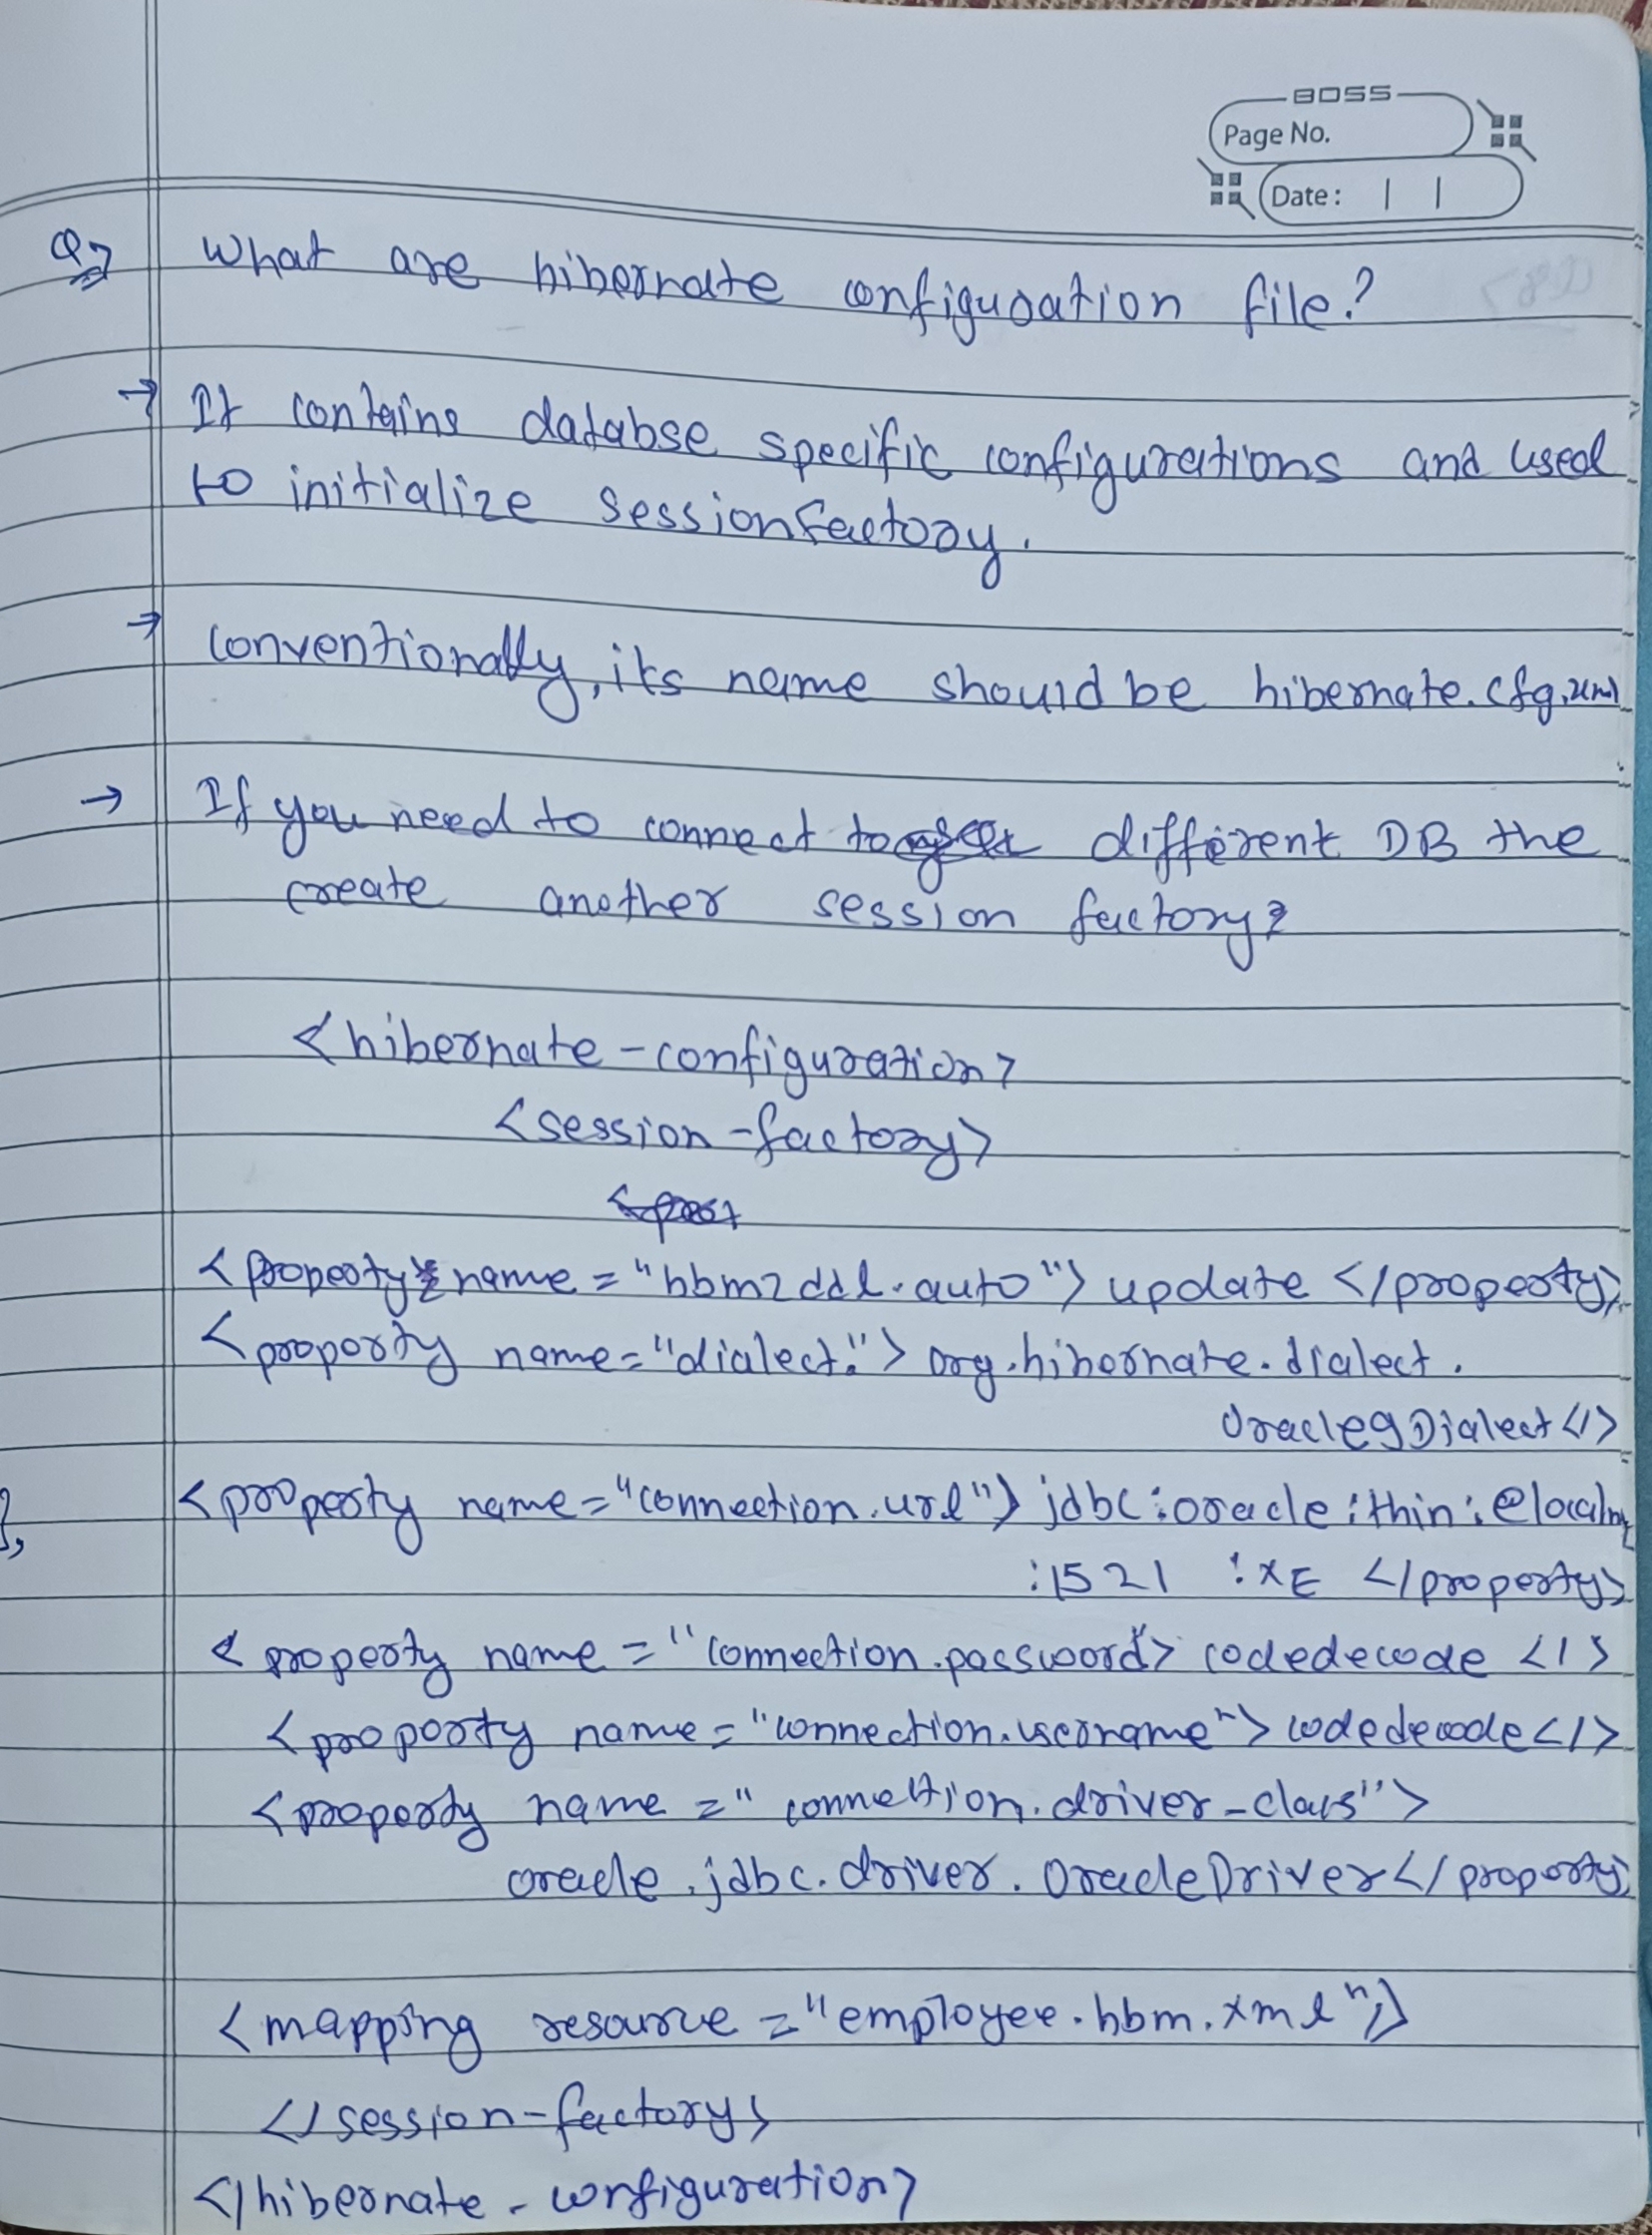 BOSS
Page No.
Date: | |
Q7 What are hibernate configuration file?
→ It contains databse specific configurations and used
to initialize sessionfactory.
→ conventionally, its name should be hibernate.cfg.xml
→ If you need to connect to different DB the
create another session factory?
<hibernate-configuration>
<session-factory>
<property name="hbm2ddl.auto"> update </property>
<property name="dialect."> org.hibernate.dialect.
Oracle9Dialect </>
<property name="connection.url"> jdbc:oracle:thin:@localh
:1521 :XE </property>
<property name="connection.password"> codedecode </>
<property name="connection.username"> codedecode </>
<property name="connection.driver-class">
oracle.jdbc.driver.OracleDriver</property>
<mapping resource="employee.hbm.xml"/>
</session-factory>
</hibernate-configuration>